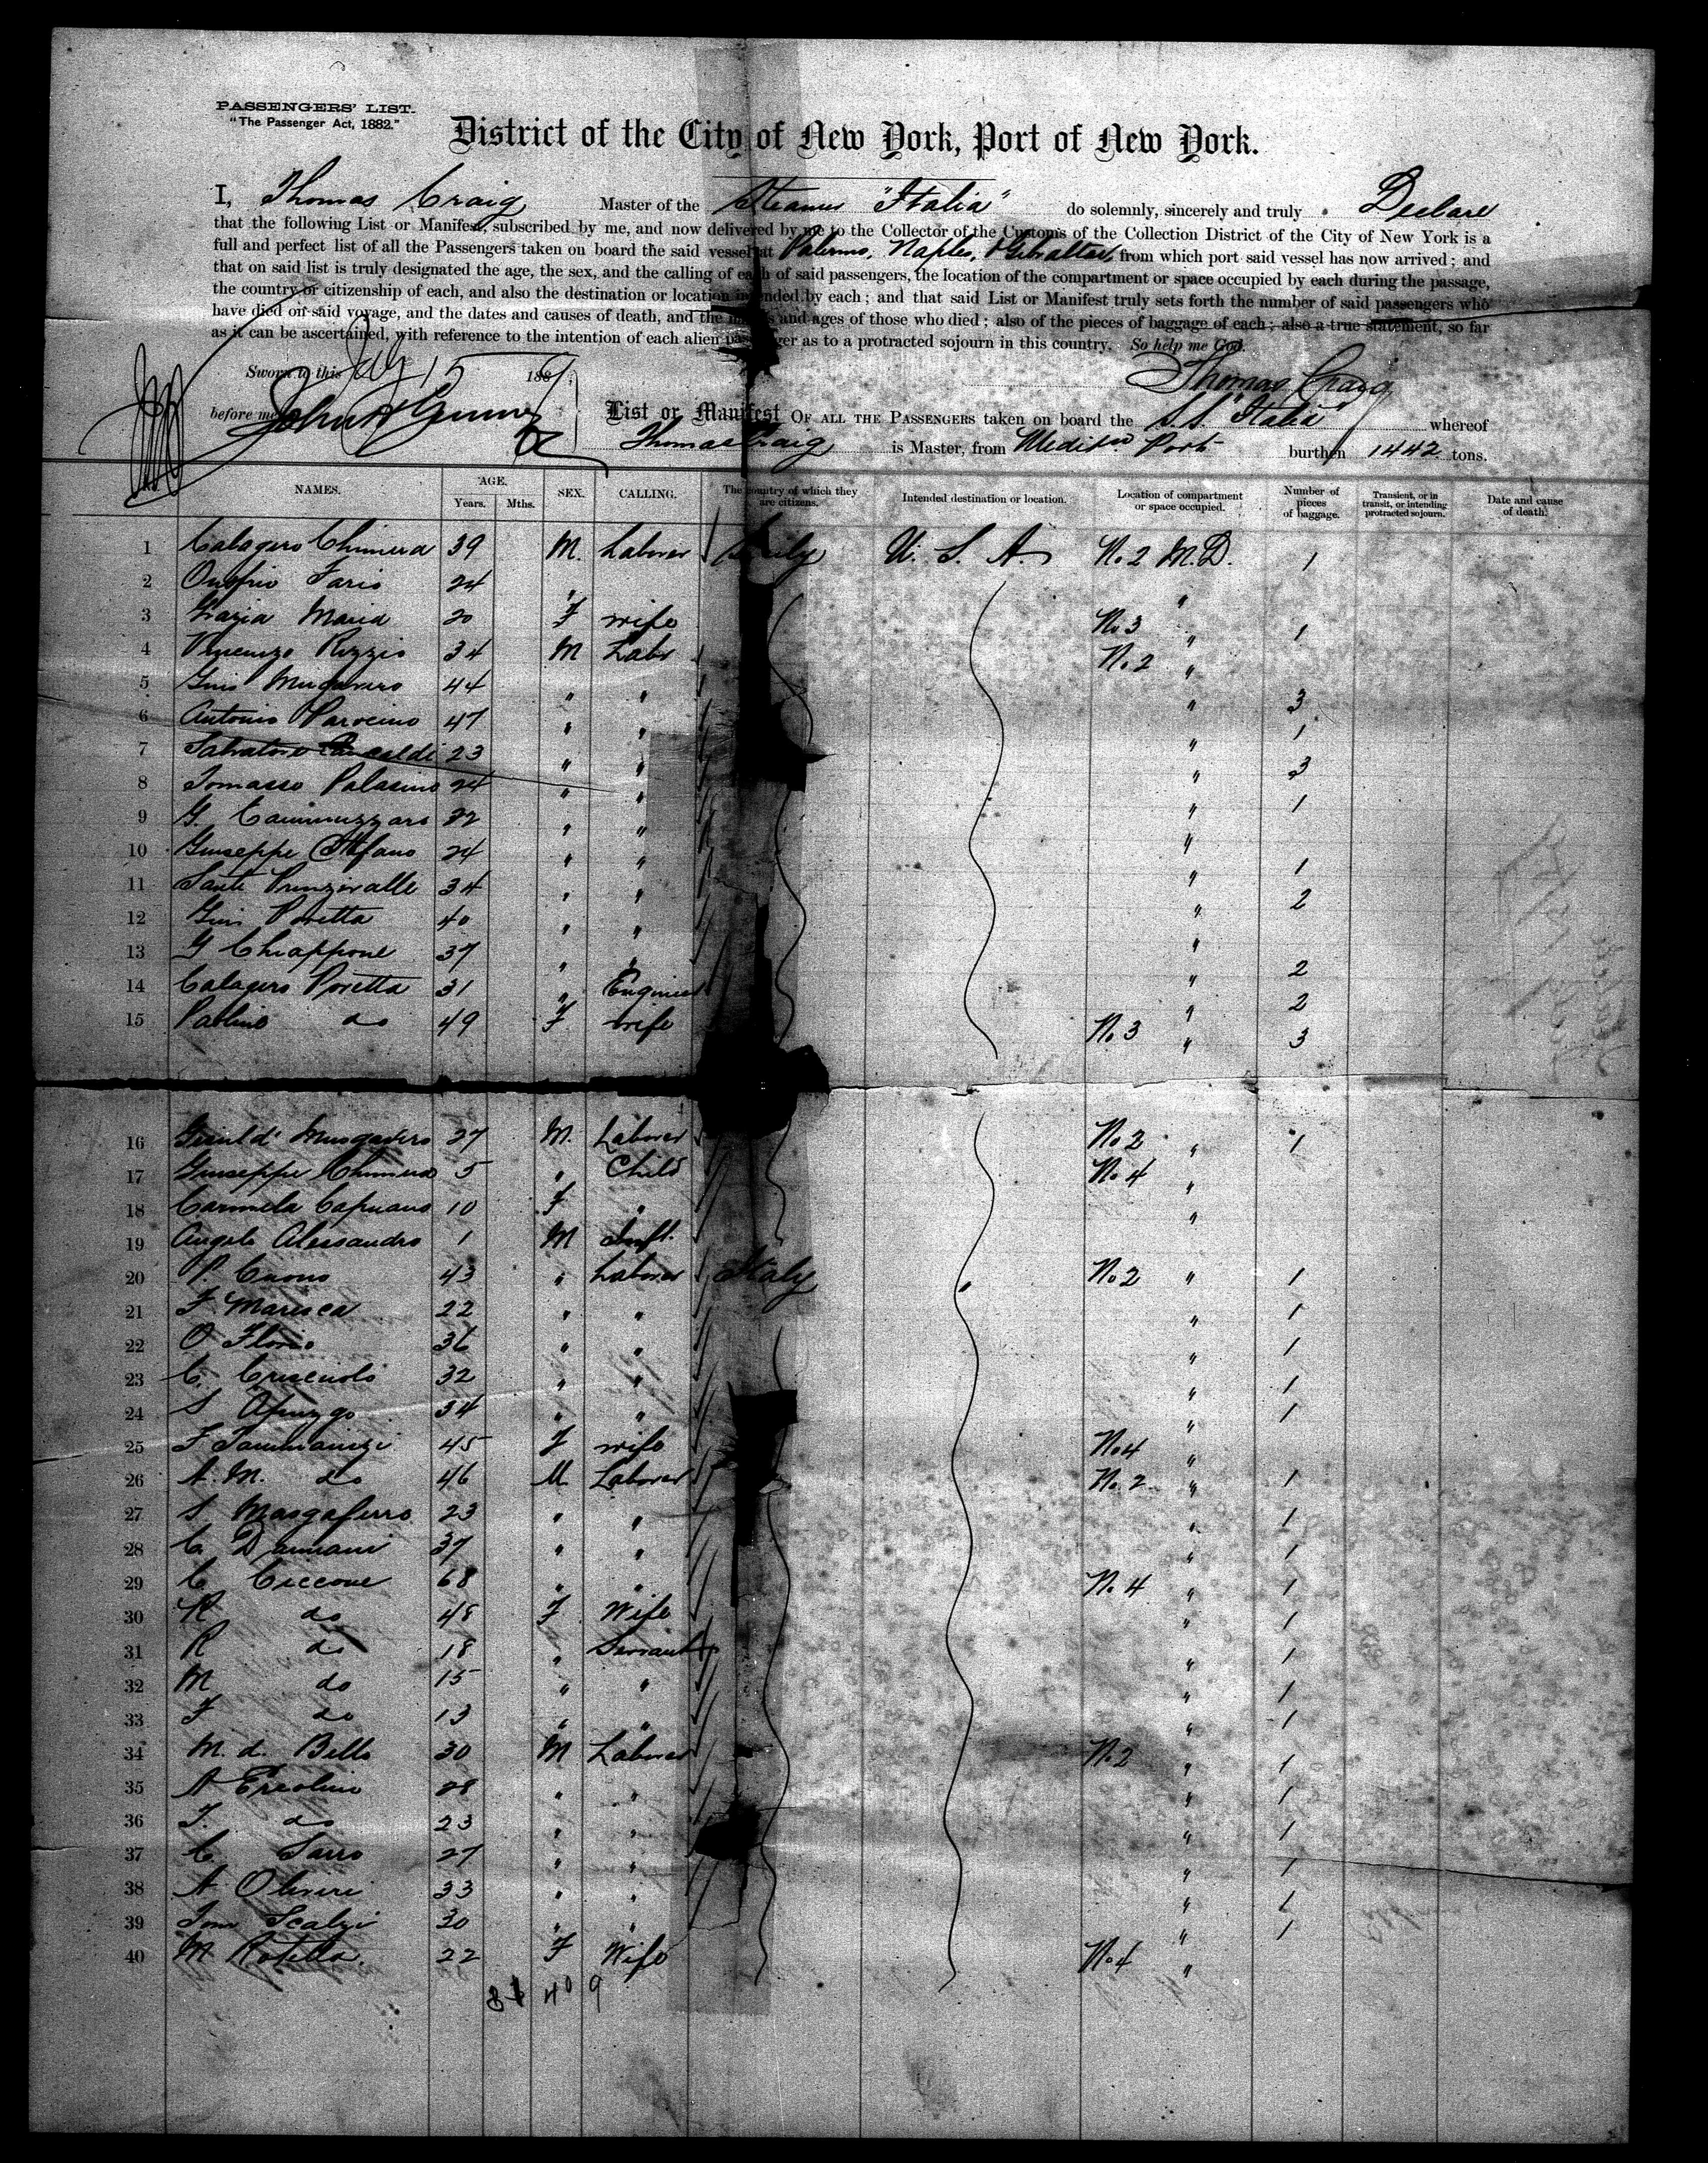 PASSENGERS' LIST.
"The Passenger Act, 1882."
District of the City of New York, Port of New York.
I, Thomas Craig Master of the Steamer "Italia" do solemnly, sincerely and truly Declare
that the following List or Manifest, subscribed by me, and now delivered by me to the Collector of the Customs of the Collection District of the City of New York is a
full and perfect list of all the Passengers taken on board the said vessel at Palermo, Naples, & Gibraltar, from which port said vessel has now arrived; and
that on said list is truly designated the age, the sex, and the calling of each of said passengers, the location of the compartment or space occupied by each during the passage,
the country or citizenship of each, and also the destination or location intended by each; and that said List or Manifest truly sets forth the number of said passengers who
have died on said voyage, and the dates and causes of death, and the and ages of those who died; also of the pieces of baggage of each; also a true statement, so far
as it can be ascertained, with reference to the intention of each alien passenger as to a protracted sojourn in this country. So help me God.
Sworn to this 15 188
Thomas Craig
before me John
List or Manifest OF ALL THE PASSENGERS taken on board the S.S. "Italia" whereof
Thomas Craig is Master, from Medit. Port burthen 1442 tons.
NAMES. AGE. Years. Mths. SEX. CALLING. The country of which they are citizens. Intended destination or location. Location of compartment or space occupied. Number of pieces of baggage. Transient, or in transit, or intending protracted sojourn. Date and cause of death.
1 Calagero Chimera 39 M. Laborer Sicily U. S. A. No. 2 M.D. 1
2 Onofrio Fario 24 " "
3 Grazia Maria 20 F wife No 3 " 1
4 Vincenzo Rizzio 34 M Labr No. 2 "
5 Gius 44 " " " 3
6 Antonio 47 " " " 1
7 Salvatore 23 " " " 3
8 Tomasso Palasino 24 " " " 1
9 G. Cammuzzaro 22 " " "
10 Giuseppe Stefano 24 " " " 1
11 Sante Prinzivalle 34 " " " 2
12 Gius Poretta 40 " " "
13 G Chiappone 37 " " " 2
14 Calagero Poretta 31 " Engineer " 2
15 Paolino do 49 F wife No. 3 " 3
16 27 M. Laborer No 2 " 1
17 Giuseppe Chimera 5 " Child No. 4 "
18 Carmela Capuano 10 F " "
19 Angelo Alessandro 1 M Inft.
20 P. Cuono 43 " Laborer Italy No 2 " 1
21 F Maresca 22 " " " 1
22 O Florio 36 " " " 1
23 C. 32 " " " 1
24 S Apuzzo 34 " " " 1
25 F 45 F wife No 4 "
26 A. M. do 46 M Laborer No. 2 " 1
27 S Masgaferro 23 " " " 1
28 C Damiani 37 " " " 1
29 C Ciccone 68 " " No. 4 " 1
30 R do 48 F Wife " 1
31 R do 18 " Servant " 1
32 M do 15 " " " 1
33 F do 13 " " " 1
34 M. d. Bello 30 M Laborer No 2 " 1
35 A Ercolino 28 " " " 1
36 F. do 23 " " " 1
37 C Sarro 27 " " " 1
38 A Oliveri 33 " " " 1
39 Scalzi 30 " " " 1
40 M Rotella. 22 F Wife No 4 "
40 9